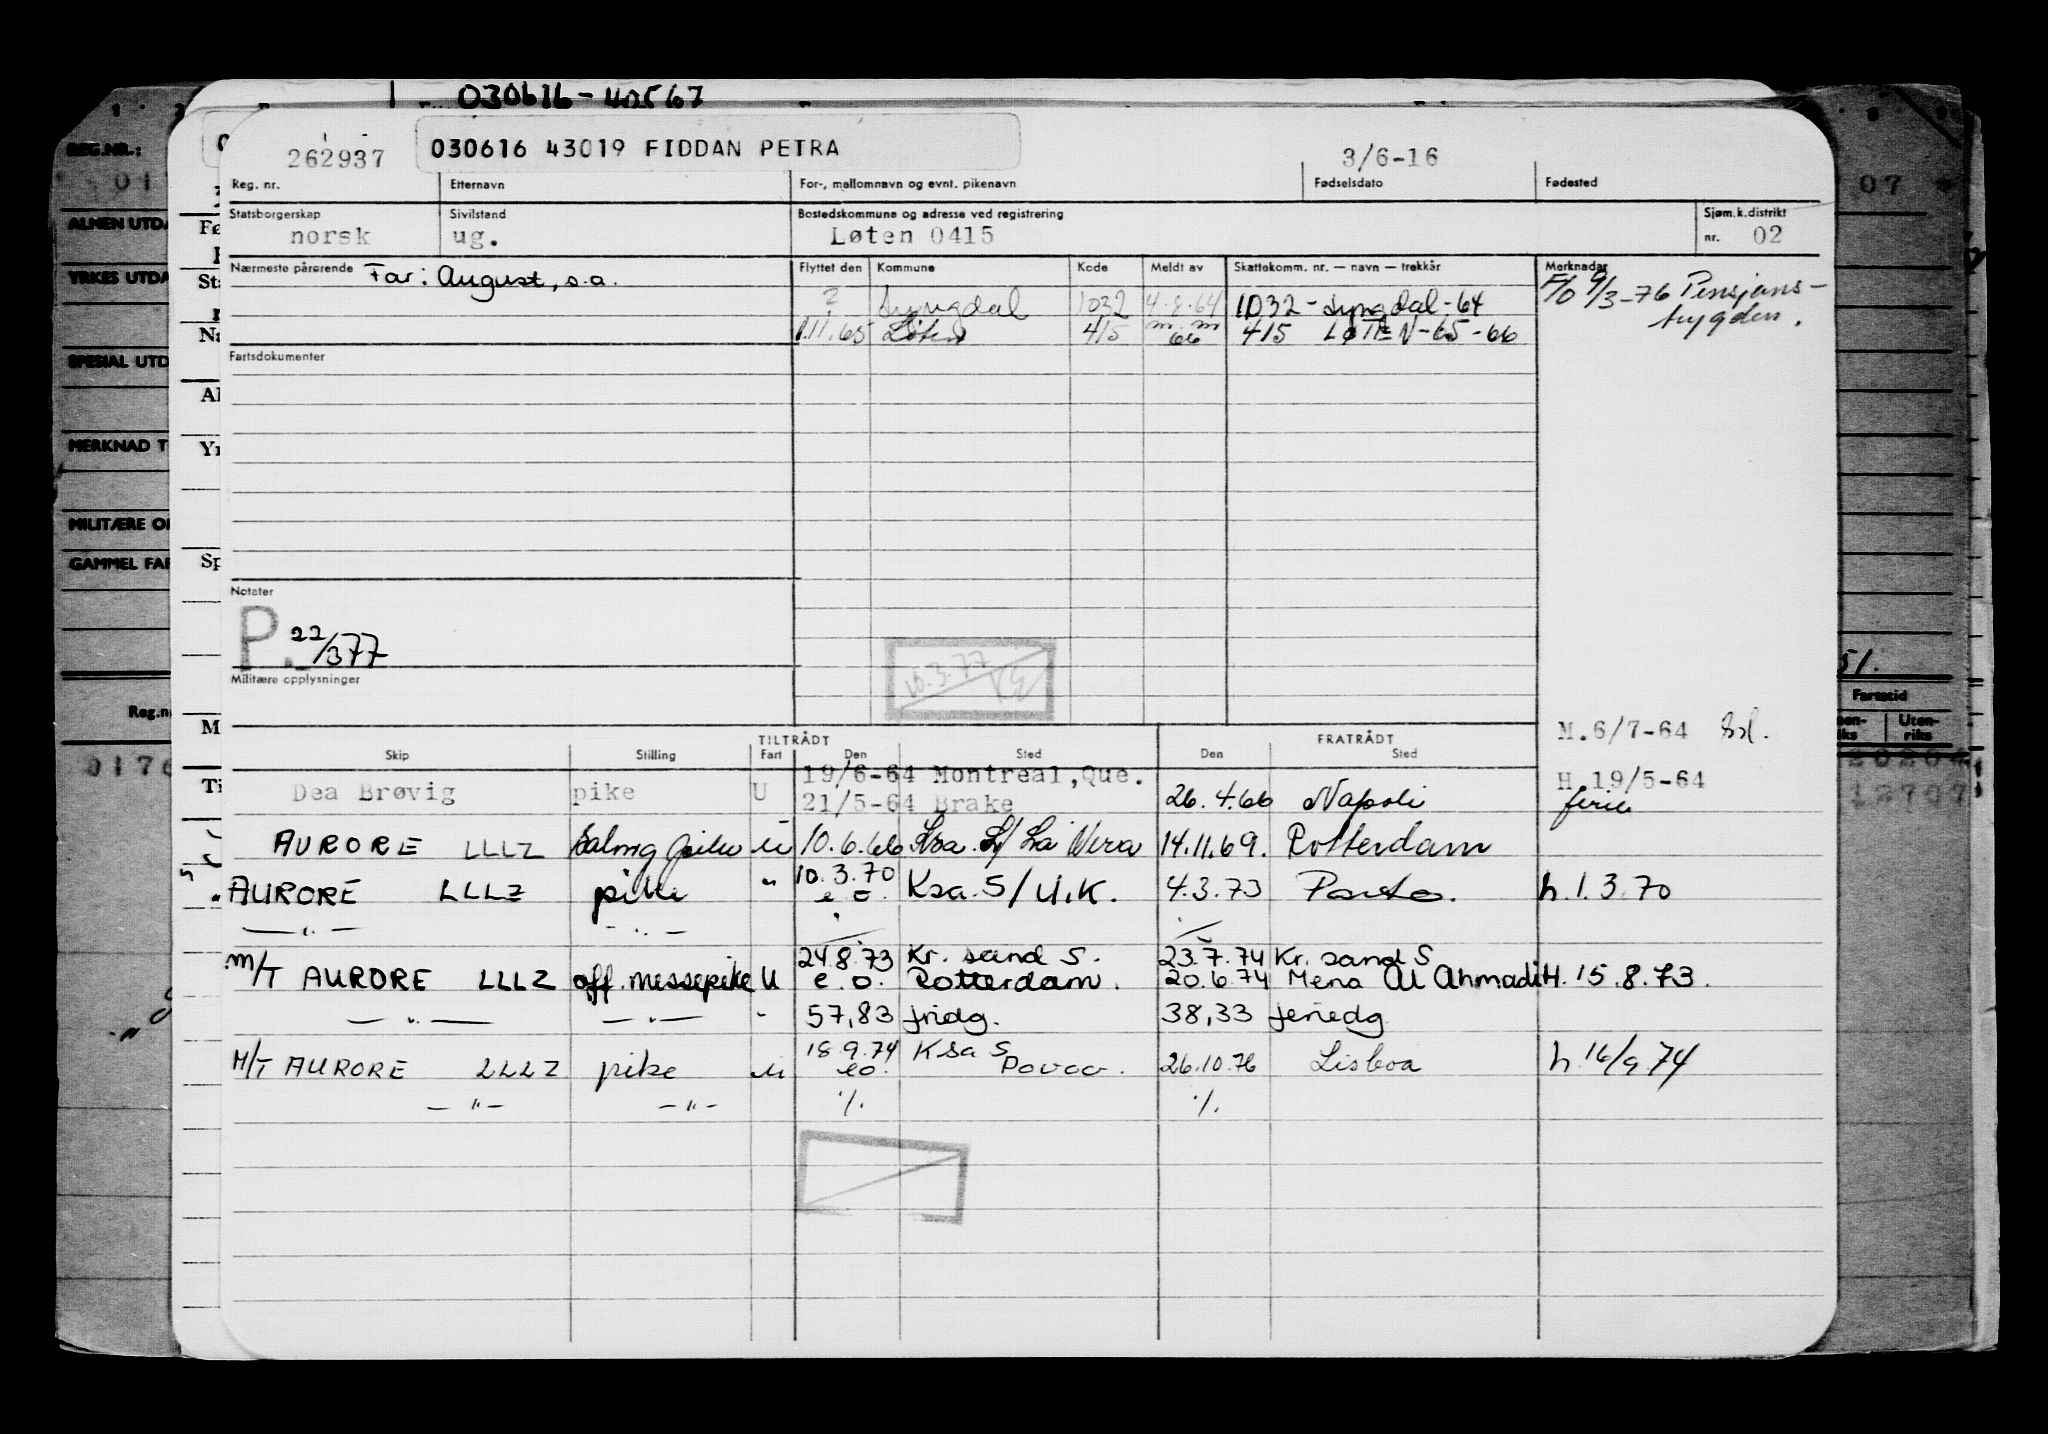 030616-40567
262937 030616 43019 FIDDAN PETRA 3/6-16
Reg. nr. Etternavn For-, mellomnavn og evnt. pikenavn Fødselsdato Fødested
Statsborgerskap Sivilstand Bostedskommune og adresse ved registrering Sjøm.k.distrikt
norsk ug. Løten 0415 nr. 02
Nærmeste pårørende Far: August, s.a. Flyttet den Kommune Kode Meldt av Skattekomm. nr. — navn — trekkår Merknader
F/O 9/3-76 Pensjons-
trygden.
? Lyngdal 1032 4.8.64 1032 - Lyngdal - 64
1.11.65 Løten 415 m.m 66 415 LØTEN - 65 - 66
Fartsdokumenter
Notater
P. 22/377
10.3.77
Militære opplysninger
M.6/7-64
TILTRÅDT FRATRÅDT
Skip Stilling Fart Den Sted Den Sted
19/6-64 Montreal,Que. H.19/5-64
Dea Brøvig pike U 21/5-64 Brake 26.4.66 Napoli ferie
AURORE LLLZ salongpike U 10.6.66 Ksa. S/ La Vera 14.11.69. Rotterdam
AURORE LLLZ pike " 10.3.70 e.o. Ksa. S/ U.K. 4.3.73 h.1.3.70
— " — — " —
24.8.73 Kr. sand S. 23.7.74 Kr. sand S
M/T AURORE LLLZ off. messepike U e.o. Rotterdam. 20.6.74 Mena Al Ahmadi H. 15.8.73.
— " — — " — " 57,83 fridg. 38,33 feriedg
18.9.74 Ksa S
M/T AURORE LLLZ pike U e.o. 26.10.76 Lisboa h.16/9.74
— " — — " — ./. ./.
REG.NR.:
ALMEN UTDA
YRKES UTDA
SPESIAL UTD
MERKNAD T
MILITÆRE O
GAMMEL FAR
Reg.n
0176
07
51.
Fartstid
Uten-
riks
12707